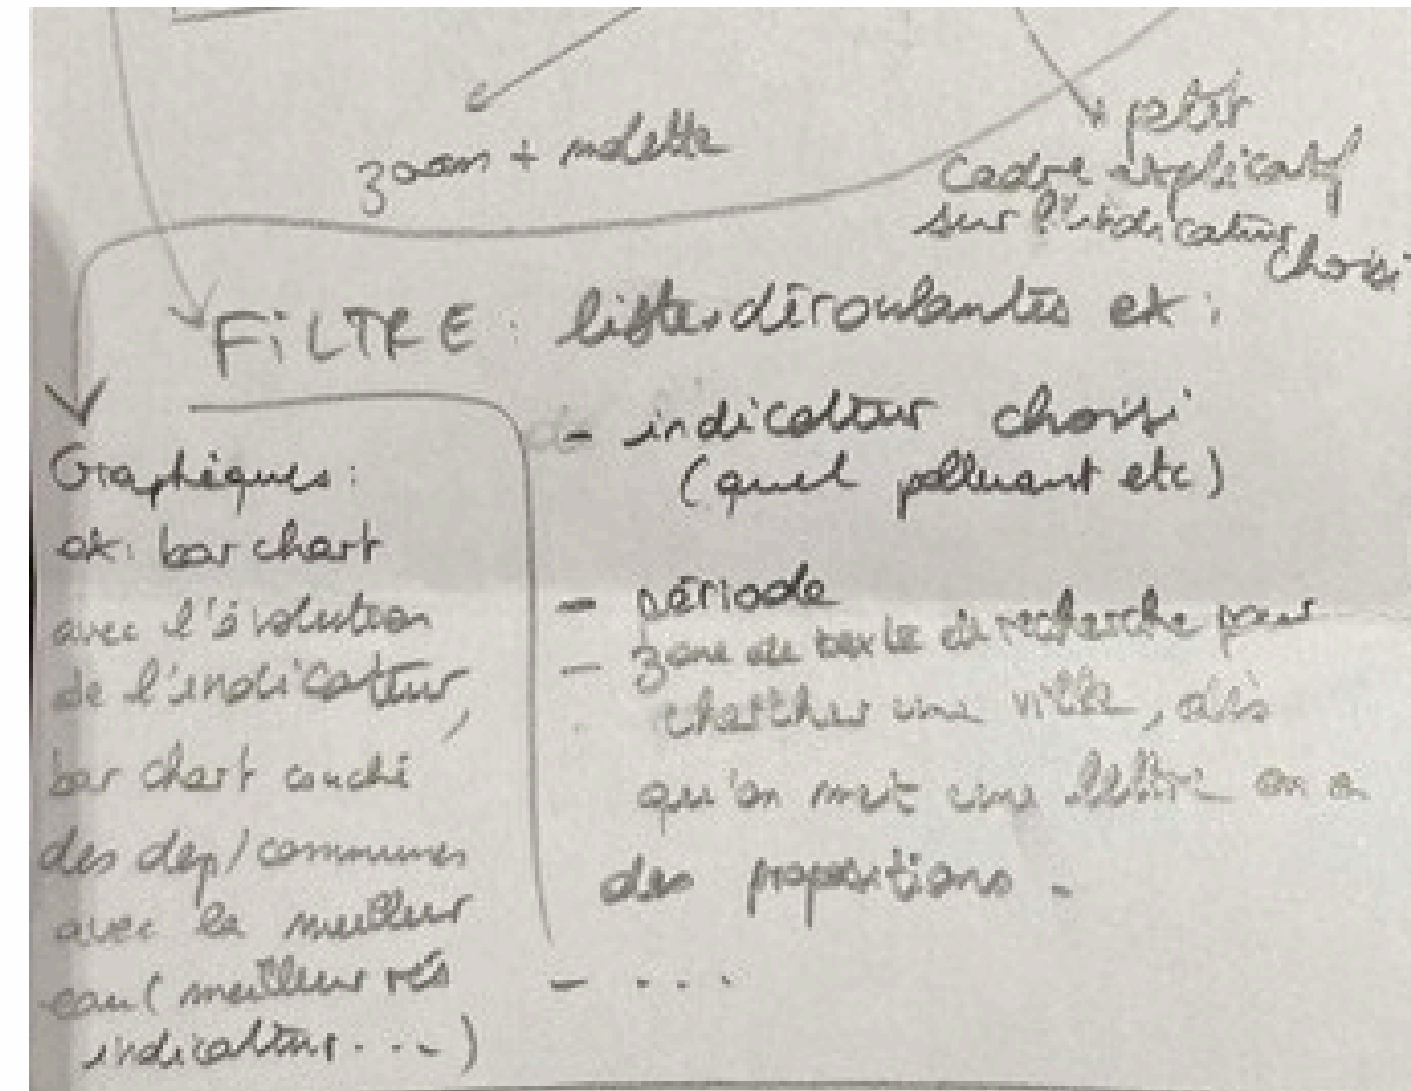 zoom + molette
+ petit
cadre explicatif
sur l'indicateur
choisi
FiLTRE : listes déroulantes ex :
- indicateur choisi
(quel polluant etc)
- période
- zone de texte de recherche pour
chercher une ville, dès
qu'on met une lettre on a
des propositions.
- ...
Graphiques :
ex : bar chart
avec l'évolution
de l'indicateur,
bar chart couché
des dep/communes
avec la meilleur
eau (meilleur rés
indicateur...)